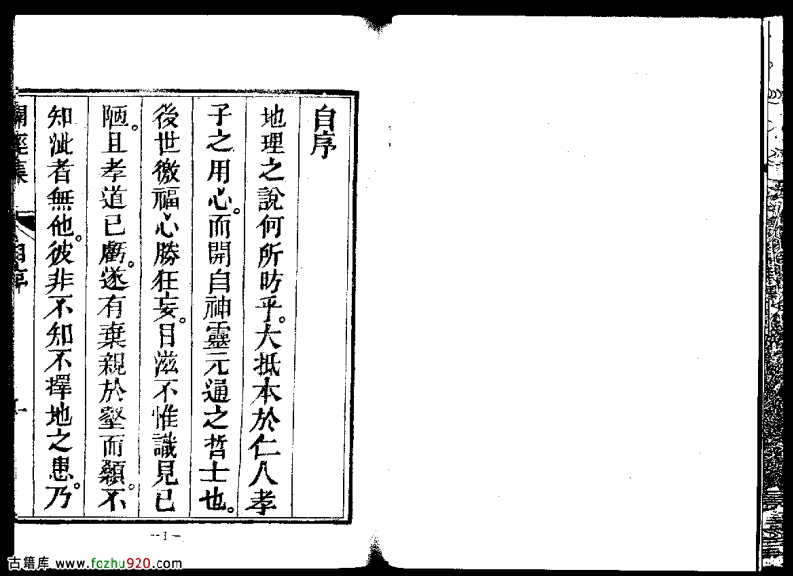 自序
地理之說何所昉乎。大抵本於仁人孝
子之用心。而開自神靈元通之哲士也。
後世徼福心勝狂妄。日滋不惟識見已
陋。且孝道已虧。遂有棄親於壑而顙。不
知泚者無他。彼非不知不擇地之患。乃
經集
自序
--1--
古籍库 www.fozhu920.com